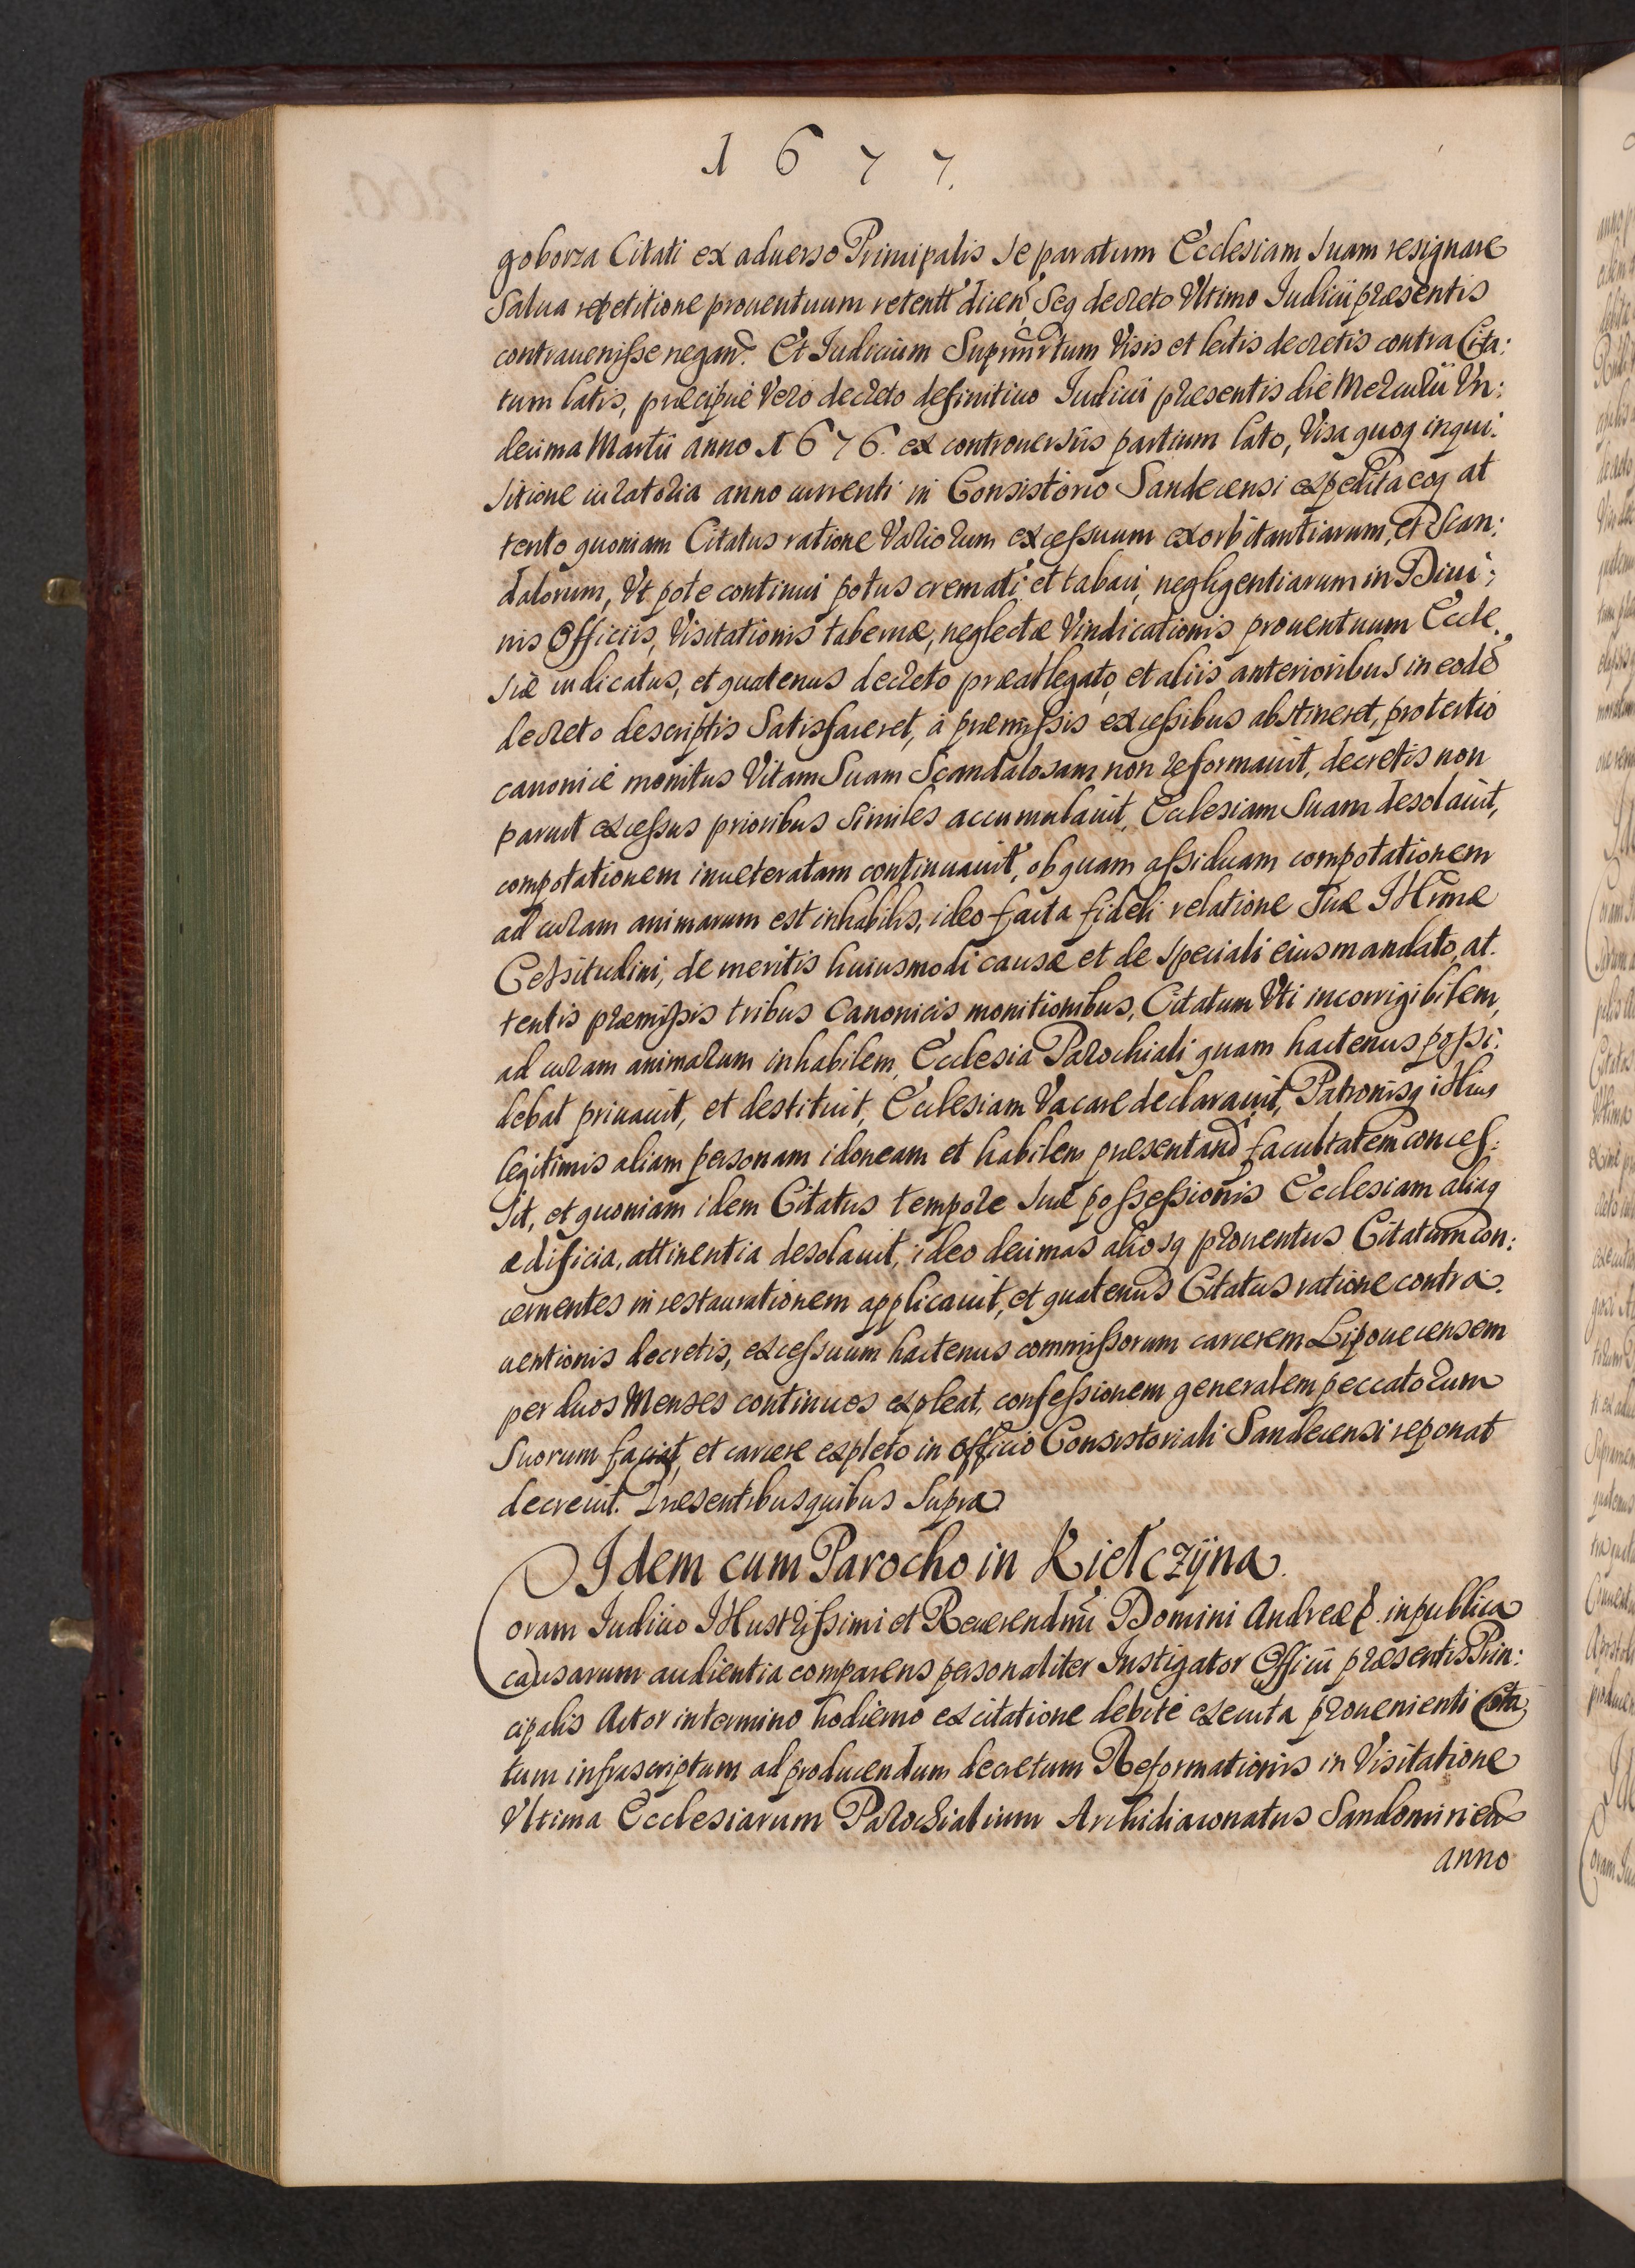 1677.
goborza Citati ex aduerso Principalis se paratum Ecclesiam suam resignare
salua repetitione prouentuum retentt dicen, seq decreto Vltimo Iudicii præsentis
contrauenisse negan. Et Iudicium Suprmrtum Visis et lectis decretis contra Cita:
tum latis, præcipuè Vero decreto definitiuo Iudicii præsentis die Mercurii Vn:
decima Martii anno 1676. ex controuersiis partium lato, Visa quoq inqui:
sitione iuratoria anno currenti in Consistorio Sandecensi expedita eoq at
tento quoniam Citatus ratione Variorum excessuum exorbitantiarum, et Scan:
dalorum, Vt pote continui potus cremati et tabaci, negligentiarum in Diui:
nis Officiis, Visitationis tabernæ, neglectæ Vindicationis prouentuum Eccle
siæ iudicatus, et quatenus decreto præallegato, et aliis anterioribus in eodē
decreto descriptis Satisfaceret, à præmissis excessibus abstineret, pro tertio
canonicè monitus Vitam Suam Scandalosam non reformauit, decretis non
paruit excessus prioribus similes accumulauit, Ecclesiam Suam desolauit,
compotationem inueteratam continuauit, ob quam assiduam compotationem
ad curam animarum est inhabilis, ideo facta fideli relatione Suæ Illtmæ
Celsitudini, de meritis huiusmodi causæ et de speciali eius mandato, at:
tentis præmissis tribus Canonicis monitionibus, Citatum Vti incorrigibilem,
ad curam animarum inhabilem, Ecclesia Parochiali quam hactenus possi:
debat priuauit, et destituit, Ecclesiam Vacare declarauit, Patronisq illius
legitimis aliam personam idoneam et habilem præsentand facultatem conces:
sit, et quoniam idem Citatus tempore suæ possessionis Ecclesiam aliaq
ædificia, attinentia desolauit, ideo decimas aliosq prouentus Citatum con:
cernentes in restaurationem applicauit, et quatenus Citatus ratione contra:
uentionis decretis, excessuum hactenus commissorum carcerem Lipouecensem
per duos Menses continuos expleat, confessionem generalem peccatorum
Suorum faciat, et carcere expleto in officio Consistoriali Sandecensi reponat
decreuit. Præsentibus quibus Supra
Idem cum Parocho in Kielczÿna.
Coram Iudicio Illustrissimi et Reuerendmi Domini Andreæ &. in publica
causarum audientia comparens personaliter Instigator Officii præsentis Prin:
cipalis Actor in termino hodierno ex citatione debitè executa prouenienti Cita
tum infrascriptum ad producendum decretum Reformationis in Visitatione
Vltima Ecclesiarum Parochialium Archidiaconatus Sandomirien
anno